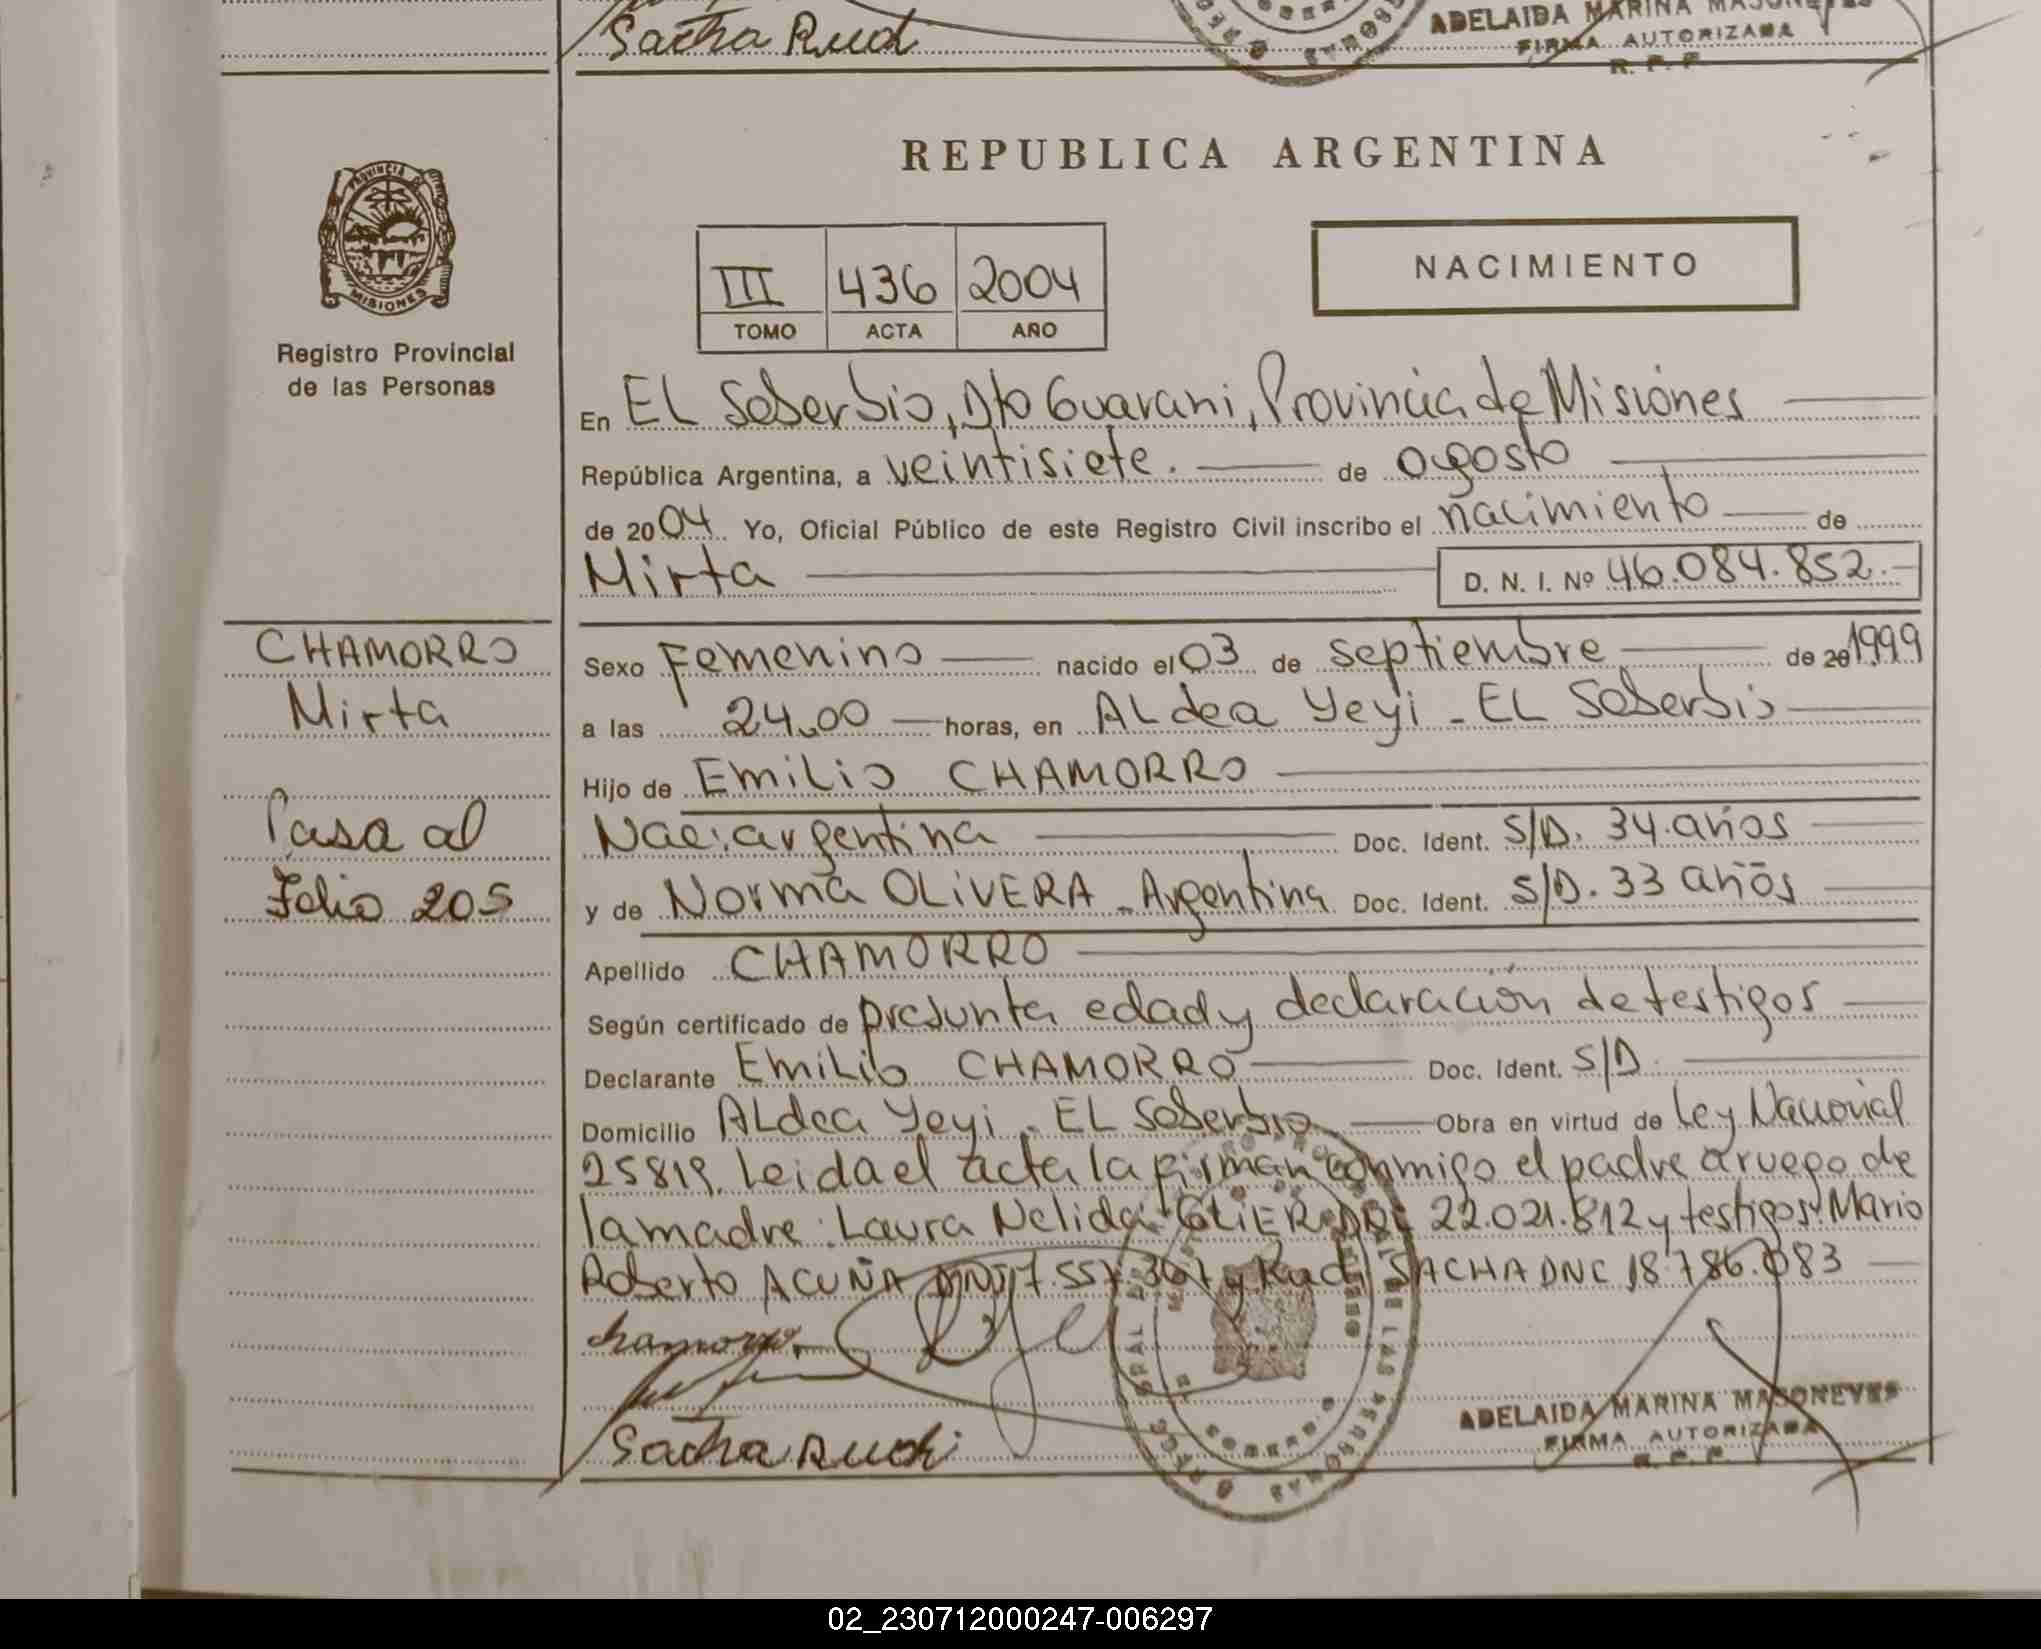 Sacha Rud
ADELAIDA MARINA MASONEVES
FIRMA AUTORIZADA
R. P. P
PROVINCIA DE
MISIONES
Registro Provincial
de las Personas
REPUBLICA ARGENTINA
III 436 2004
TOMO ACTA AÑO
NACIMIENTO
En EL Soberbio, Dto Guarani, Provincia de Misiones
República Argentina, a veintisiete. de agosto
de 2004 Yo, Oficial Público de este Registro Civil inscribo el nacimiento de
Mirta D. N. I. Nº 46.084.852.-
CHAMORRO
Mirta
Pasa al
Folio 205
Sexo Femenino nacido el 03 de septiembre de 20 1999
a las 24,00 horas, en ALdea Yeyi - EL Soberbio
Hijo de EmiLio CHAMORRO
Nac: argentina Doc. Ident. S/D. 34 años
y de Norma OLiVERA - Argentina Doc. Ident. S/D. 33 años
Apellido CHAMORRO
Según certificado de presunta edad y declaración de testigos
Declarante EmiLio CHAMORRO Doc. Ident. S/D.
Domicilio ALdea Yeyi - EL Soberbio Obra en virtud de Ley Nacional
25819. Leida el acta la firman conmigo el padre a ruego de
la madre: Laura Nelida GLIER DNI 22.021.812 y testigos: Mario
Roberto ACUÑA DNI 17.557.367 y Rudi SACHA DNI 18.786.083
chamorro
Sacha Rudi
ADELAIDA MARINA MASONEVES
FIRMA AUTORIZADA
R. P. P
02_230712000247-006297